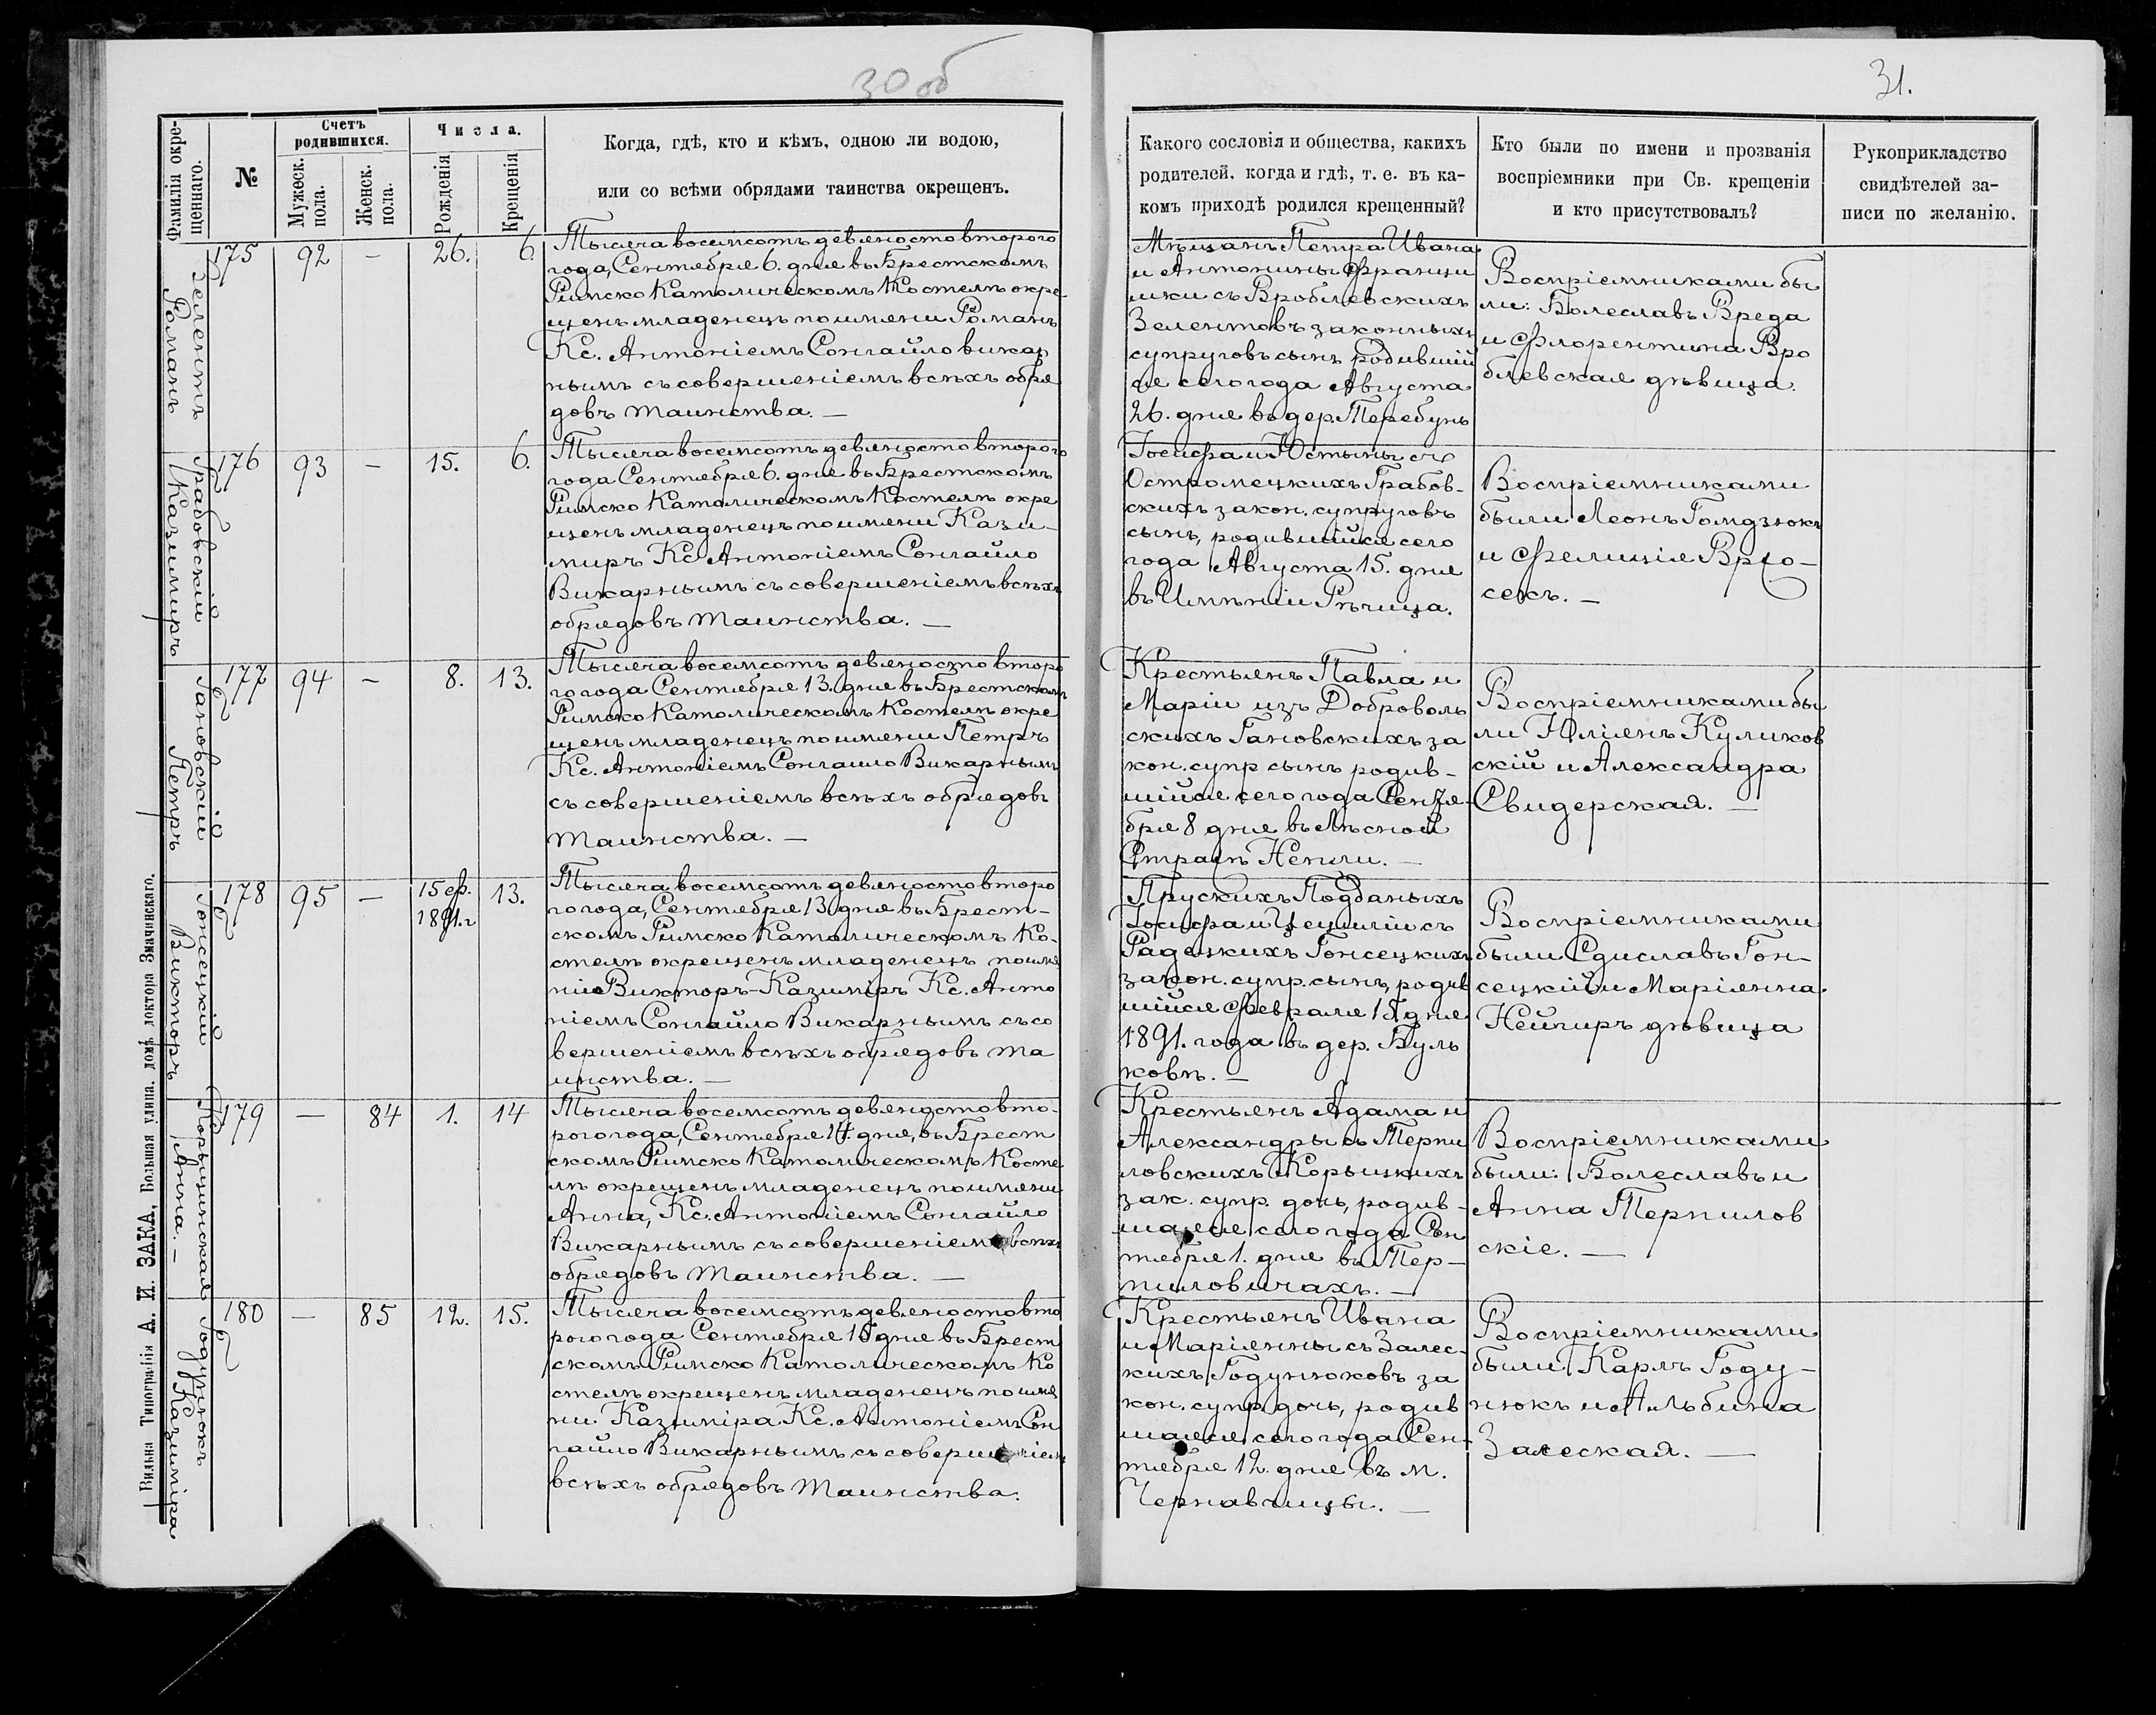 30 об
31.
Фамилія окрещеннаго.
№
Счетъ родившихся.
Мужеск. пола.
Женск. пола.
Числа.
Рожденія
Крещенія
Когда, гдѣ, кто и кѣмъ, одною ли водою,
или со всѣми обрядами таинства окрещенъ.
Какого сословія и общества, какихъ
родителей, когда и гдѣ, т. е. въ ка-
комъ приходѣ родился крещенный?
Кто были по имени и прозванія
воспріемники при Св. крещеніи
и кто присутствовалъ?
Рукоприкладство
свидѣтелей за-
писи по желанію.
Зелентъ
Романъ
175 92 — 26. 6.
Тысяча восемсотъ девяносто второго
года, Сентября 6. дня въ Брестскомъ
Римско Католическомъ Костелѣ окре-
щенъ младенецъ по имени Романъ
Кс. Антоніемъ Сонгайло викар
нымъ съ совершеніемъ всѣхъ обря
довъ таинства. —
Мѣщанъ Петра Ивана
и Антонины Франци
шки съ Вроблевскихъ
Зелентовъ законныхъ
супруговъ сынъ родившій
ся сего года Августа
26. дня въ дер. Теребунь
Воспріемниками бы
ли: Болеславъ Вреда
и Флорентина Вро
блевская дѣвица.
Грабовскій
Казимиръ
176 93 — 15. 6.
Тысяча восемсотъ девяносто второго
года Сентября 6. дня въ Брестскомъ
Римско Католическомъ Костелѣ окре
щенъ младенецъ по имени Кази-
миръ Кс. Антоніемъ Сонгайло
Викарнымъ съ совершеніемъ всѣхъ
обрядовъ таинства. —
Іосифа и Юстыны съ
Остромецкихъ Грабов-
скихъ закон. супруговъ
сынъ, родившійся сего
года Августа 15. дня
въ Имѣніи Рѣчица.
Воспріемниками
были Леонъ Гомдзюкъ
и Фелиція Врго-
секъ. —
Гановскій
Петръ
177 94 — 8. 13.
Тысяча восемсотъ девяносто второ
го года Сентября 13. дня въ Брестскомъ
Римско Католическомъ Костелѣ окре
щенъ младенецъ по имени Петръ
Кс. Антоніемъ Сонгаило Викарнымъ
съ совершеніемъ всѣхъ обрядовъ
таинства. —
Крестьянъ Павла и
Маріи изъ Доброволь
скихъ Гановскихъ за
кон. супр сынъ родив-
шійся сего года Сентя-
бря 8 дня въ Лѣсной
Стражѣ Непли. —
Воспріемниками бы
ли Юліянъ Куликов
скій и Александра
Свидерская. —
Гонсецкій
Викторъ
178 95 — 15 ф. 1891.г 13.
Тысяча восемсотъ девяносто второ
го года, Сентября 13. дня въ Брест-
скомъ Римско Католическомъ Ко-
стелѣ окрещенъ младенецъ по име
ни Викторъ-Казиміръ Кс. Анто
ніемъ Сонгайло Викарнымъ съ со
вершеніемъ всѣхъ обрядовъ та
инства. —
Прускихъ Подданыхъ
Іосифа и Цециліи съ
Радецкихъ Гонсецкихъ
закон. супр. сынъ, родив
шійся Февраля 15 дня
1891. года въ дер. Буль
ковѣ. —
Воспріемниками
были Сдиславъ Гон-
сецкій и Маріянна
Нейгиръ дѣвица
Корыцинская
Анна. —
179 — 84 1. 14
Тысяча восемсотъ девяносто вто-
рого года, Сентября 14. дня, въ Брест
скомъ Римско Католическомъ Косте
лѣ окрещенъ младенецъ по имени
Анна, Кс. Антоніемъ Сонгайло
Викарнымъ съ совершеніемъ всѣхъ
обрядовъ таинства. —
Крестьянъ Адама и
Александры съ Терпи
ловскихъ Корыцкихъ
зак. супр. дочь, родив-
шаяся сего года Сен
тября 1. дня въ Тер-
пиловичахъ. —
Воспріемниками
были: Болеславъ и
Анна Терпилов
скіе. —
Годунюкъ
Казиміра
180 — 85 12. 15.
Тысяча восемсотъ девяносто вто
рого года Сентября 15 дня въ Брест
скомъ Римско Католическомъ Ко
стелѣ окрещенъ младенецъ по име
ни Казиміра Кс. Антоніемъ Сон
гайло Викарнымъ съ совершеніемъ
всѣхъ обрядовъ таинства.
Крестьянъ Ивана
и Маріянны съ Залес-
кихъ Годунюковъ за
кон. супр. дочь, родив
шаяся сего года Сен-
тября 12. дня въ м.
Чернавчицы. —
Воспріемниками
были Карлъ Году-
нюкъ и Альбина
Залеская. —
Вильна Типографія А. И. ЗАКА, Большая улица. домъ доктора Змачинскаго.